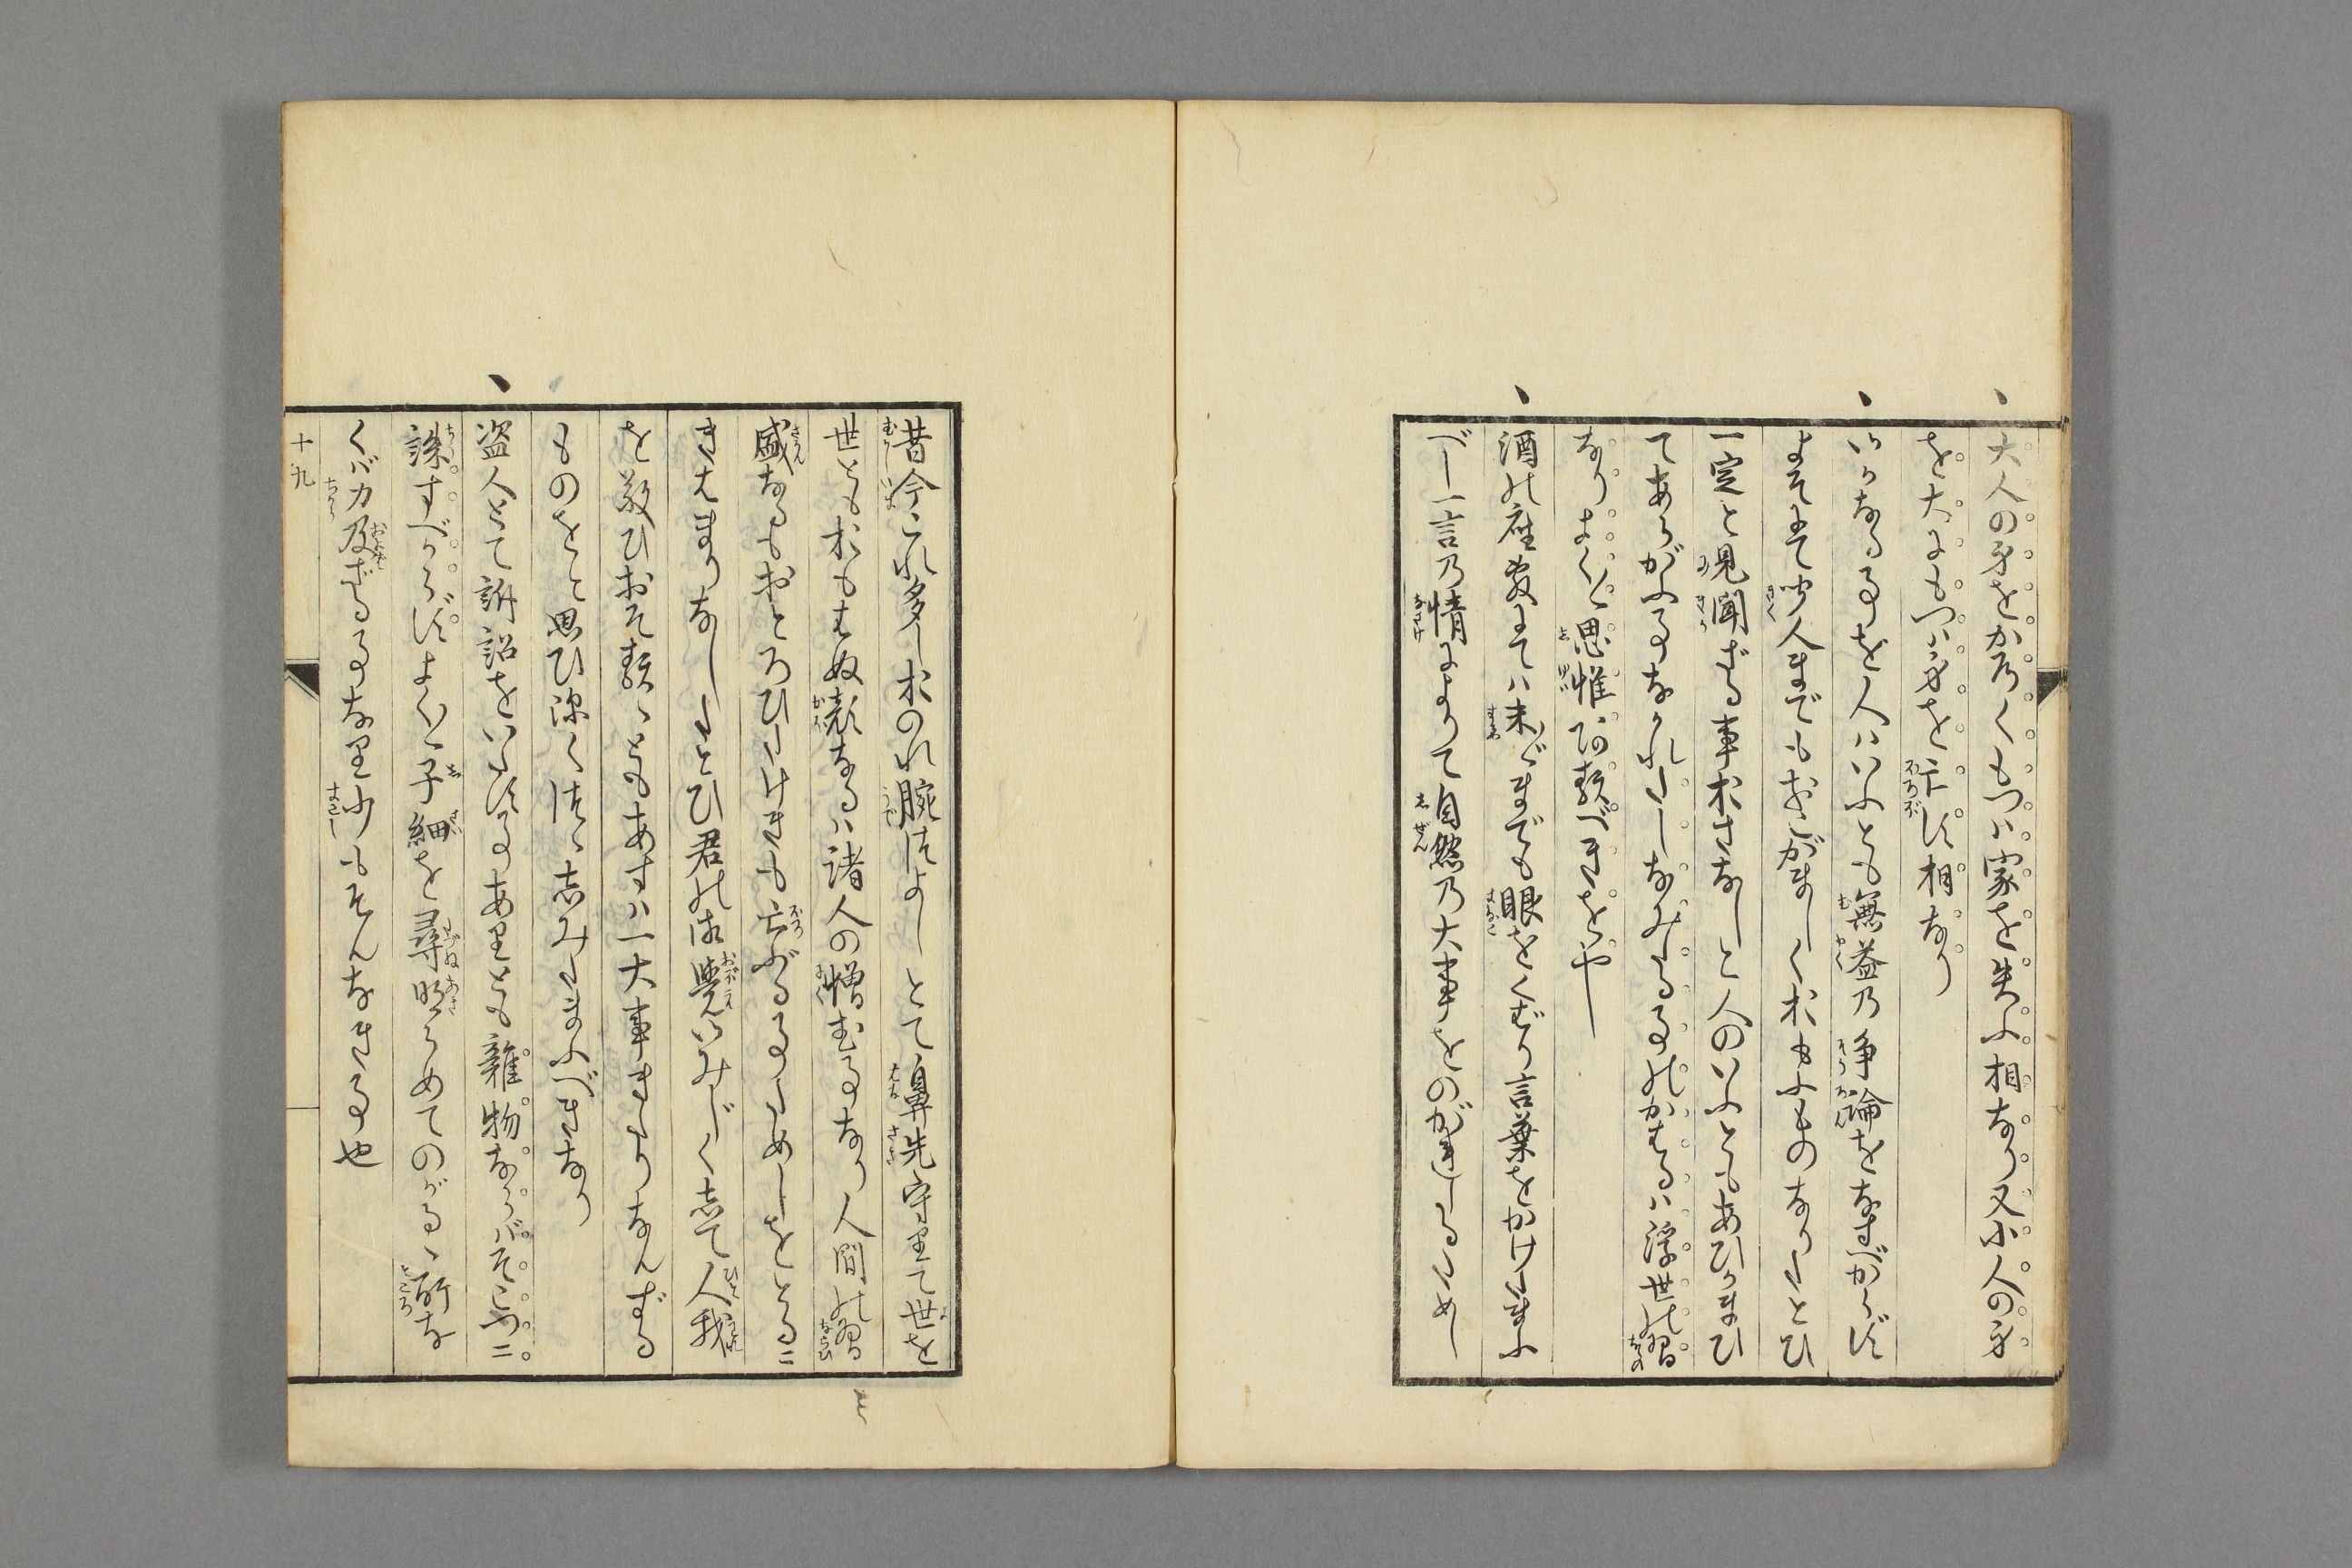 大人の身をかろくもつは家を失ふ相なり又小人の身
を大にもつは身を亡す相なり
いかなる事を人はいふとも無益乃諍論をなすべからず
よそにて聞く人までもおこがましくおもふものなりたとひ
一定と見聞ざる事おさなしと人のいふともあひかまひ
てあらがふ事なかれくしなみける事のかはるは浮世の習
なりよく〳〵思惟し給べきをや
酒の座敷にては末ざまでも眼をくばり言葉をかけたまふ
べし一言乃情によりて自然乃大事をのがれしるためし
昔今これ多しおのれ腕はよしとて鼻先守里て世を
世ともおもはぬ顔なるは諸人の憎む事なり人間の習
盛なるもおとろひたけきも亡ぶる事ためしをとるに
きはまりなしたとひ君の御覚いみじく志て人我
を敬ひおそるゝともあすは一大事きたりなんずる
ものをと思ひ深くつゝ志みたまふべきなり
盗人とて訴訟をいたす事あ里とも雑物ならばそこつに
誅すべからずよく〳〵子細を尋明らめてのがるゝ所な
くば力及ざる事な里少もそんなき事也
十九